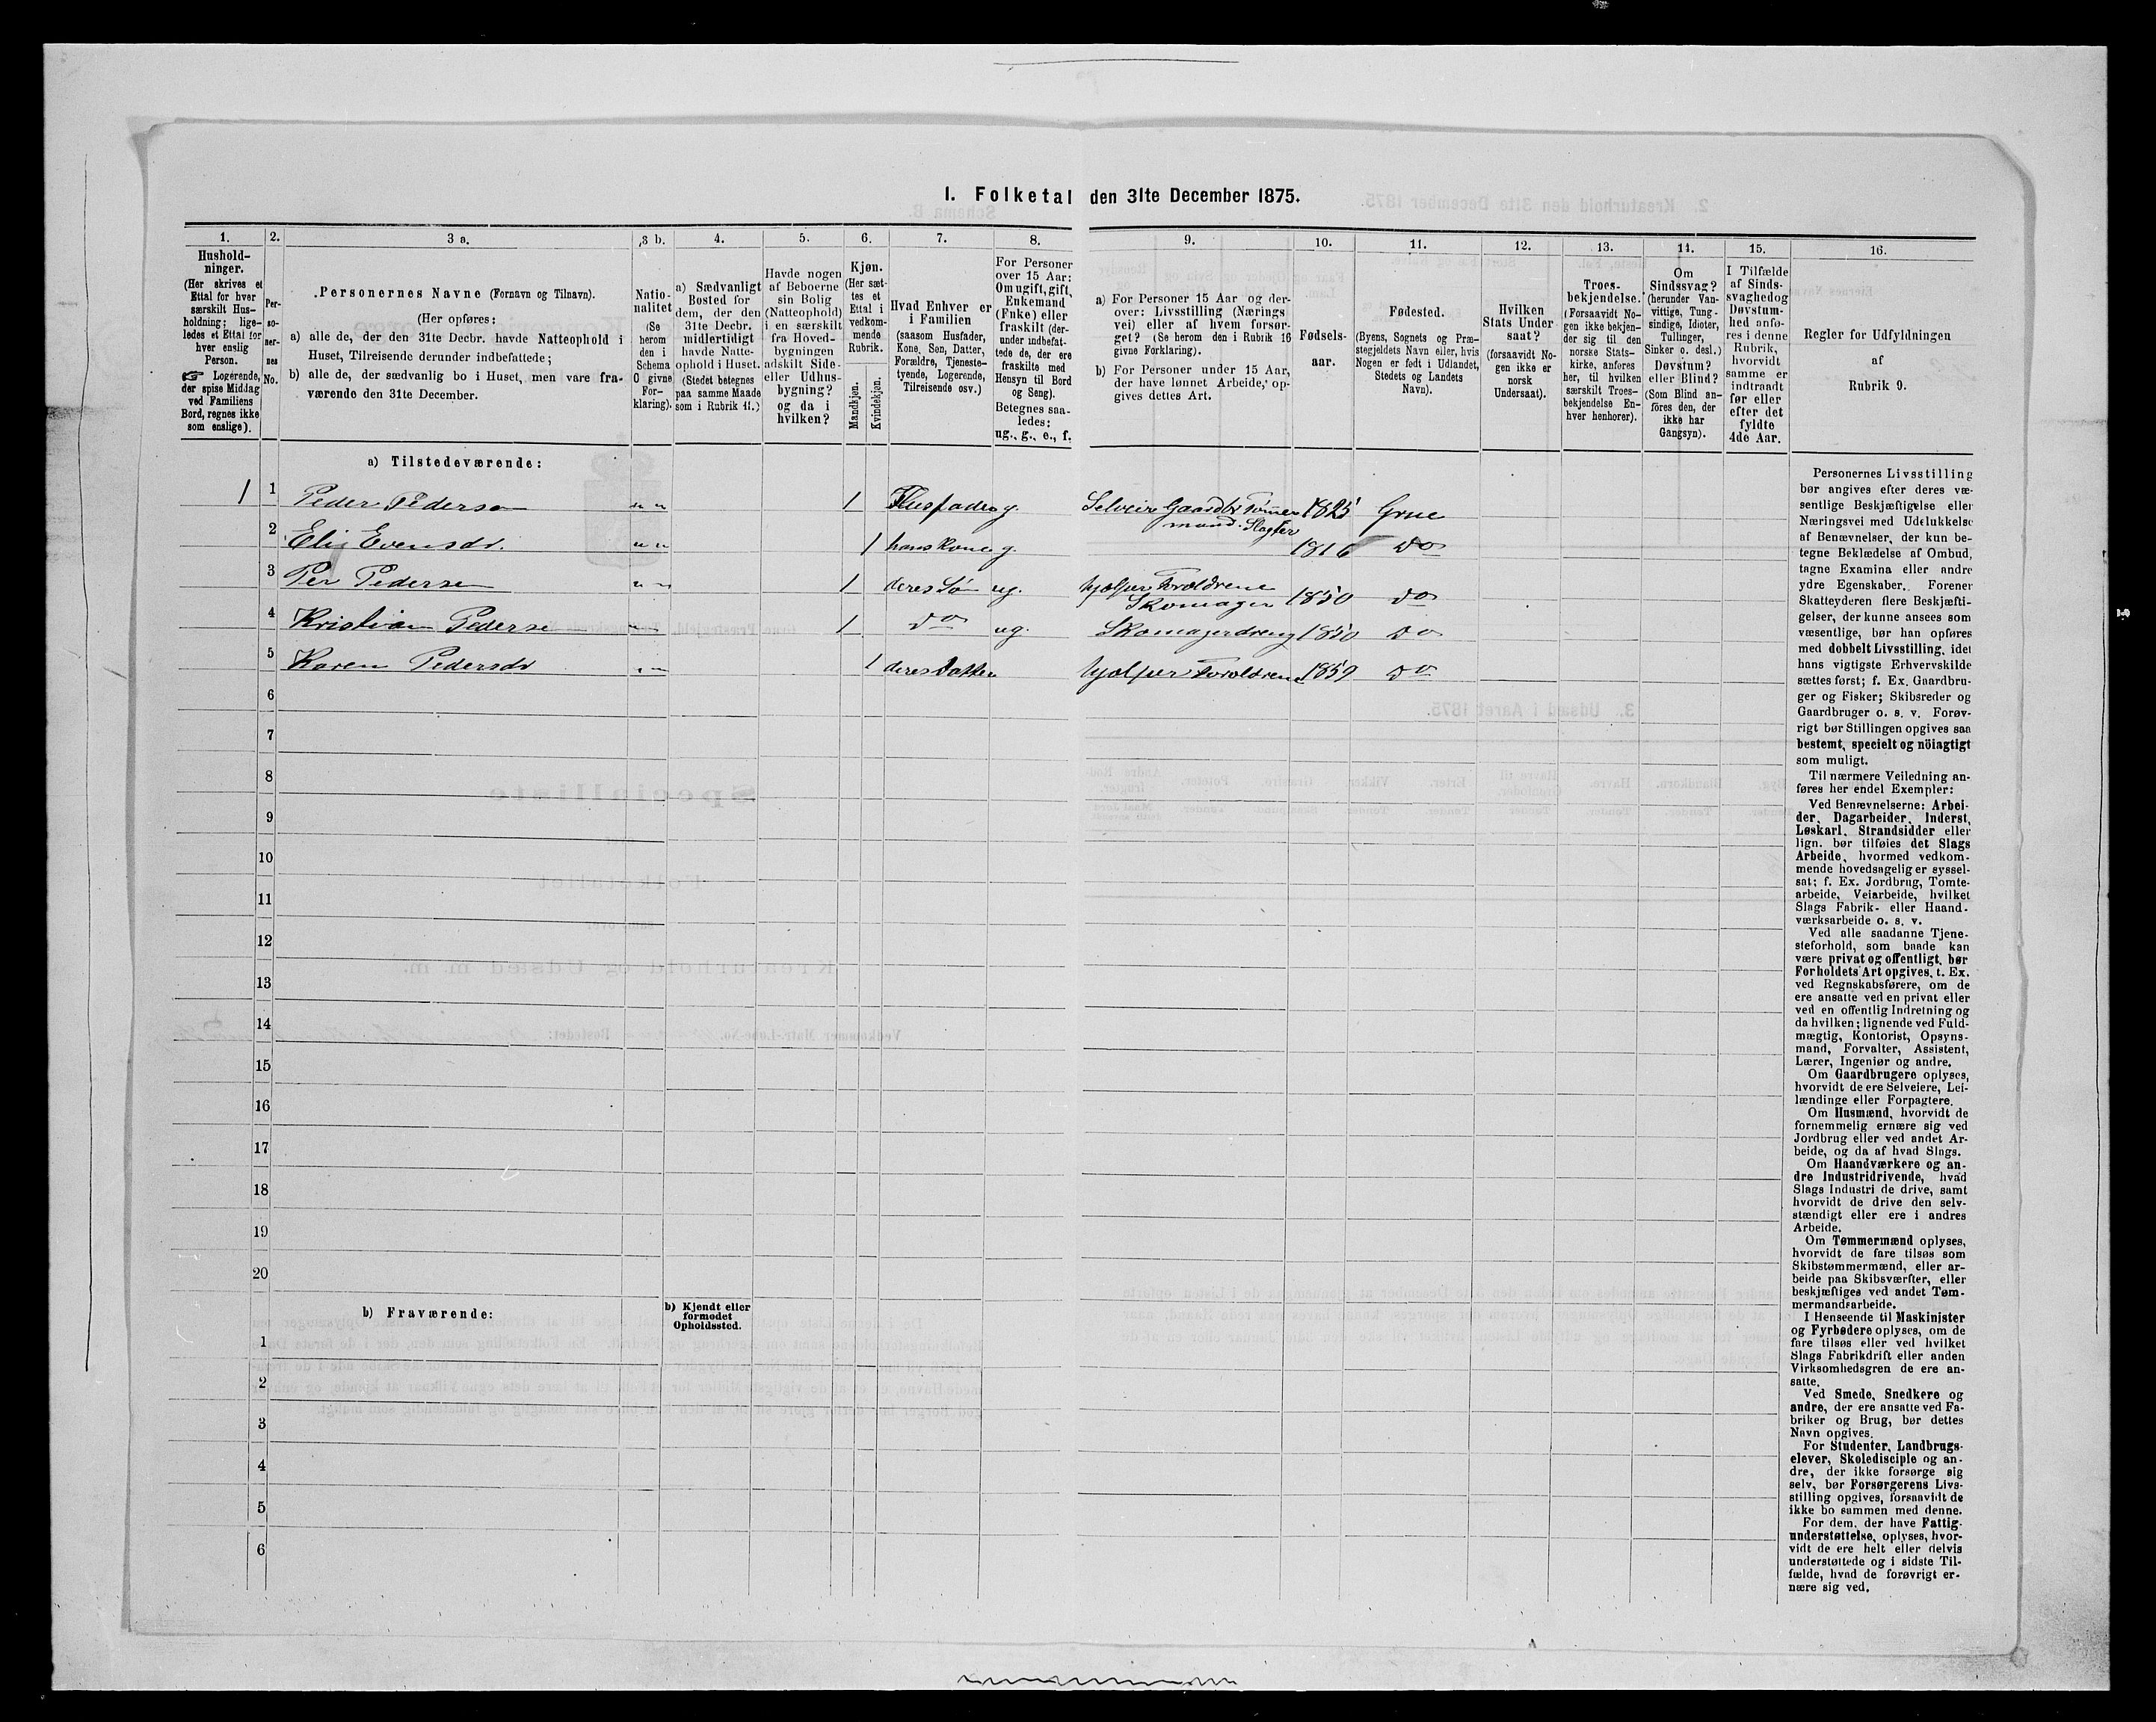 I. Folketal den 31te December 1875.
1.
2.
3 a.
3 b.
4.
5.
6.
7.
8.
9.
10.
11.
12.
13.
14.
15.
16.
Hushold-
ninger.
(Her skrives et
Ettal for hver
særskilt Hus-
holdning; lige-
ledes et Ettal for
hver enslig
Person.
☞ Logerende,
der spise Middag
ved Familiens
Bord, regnes ikke
som enslige).
Per-
so-
ner-
nes
No.
Personernes Navne (Fornavn og Tilnavn).
(Her opføres:
a) alle de, der den 31te Decbr. havde Natteophold i
Huset, Tilreisende derunder indbefattede;
b) alle de, der sædvanlig bo i Huset, men vare fra-
værende den 31te December.
Natio-
nalitet
(Se
herom
den i
Schema
O givne
For-
klaring).
a) Sædvanligt
Bosted for
dem, der den
31te Decbr.
midlertidigt
havde Natte-
ophold i Huset.
(Stedet betegnes
paa samme Maade
som i Rubrik 11.)
Havde nogen
af Beboerne
sin Bolig
(Natteophold)
i en særskilt
fra Hoved-
bygningen
adskilt Side-
eller Udhus-
bygning?
og da i
hvilken?
Kjøn.
(Her sæt-
tes et
Ettal i
vedkom-
mende
Rubrik.
Mandkjøn.
Kvindekjøn.
Hvad Enhver er
i Familien
(saasom Husfader,
Kone, Søn, Datter,
Forældre, Tjeneste-
tyende, Logerende,
Tilreisende osv.)
For Personer
over 15 Aar:
Om ugift, gift,
Enkemand
(Enke) eller
fraskilt (der-
under indbefat-
tede de, der ere
fraskilte med
Hensyn til Bord
og Seng).
Betegnes saa-
ledes:
ug., g., e., f.
a) For Personer 15 Aar og der-
over: Livsstilling (Nærings
vei) eller af hvem forsør-
get? (Se herom den i Rubrik 16
givne Forklaring).
b) For Personer under 15 Aar,
der have lønnet Arbeide, op-
gives dettes Art.
Fødsels-
aar.
Fødested.
(Byens, Sognets og Præ-
stegjeldets Navn eller, hvis
Nogen er født i Udlandet,
Stedets og Landets
Navn).
Hvilken
Stats Under
saat?
(forsaavidt No-
gen ikke er
norsk
Undersaat).
Troes-
bekjendelse.
(Forsaavidt No-
gen ikke bekjen-
der sig til den
norske Stats-
kirke, anføres
her, til hvilken
særskilt Troes-
bekjendelse En-
hver henhorer).
Om
Sindssvag?
(herunder Van-
vittige, Tung-
sindige, Idioter,
Tullinger,
Sinker o. desl.)
Døvstum?
eller Blind?
(Som Blind an-
föres den, der
ikke har
Gangsyn).
I Tilfælde
af Sinds-
svaghedog
Døvstum-
hed anfø-
res i denne
Rubrik,
hvorvidt
samme er
indtraadt
før eller
efter det
fyldte
4de Aar.
Regler for Udfyldningen
af
Rubrik 9.
a) Tilstedeværende:
1 1 Peder Pedersen 1 Husfader g. Selveier Gaardbr Tømmer 1825 Grue
mand. Slagter
2 Eli Evensdr. 1 hans Kone g. 1816 Do
3 Per Pedersen 1 deres Søn ug. hjælper Forældrene
Skomager 1850 Do
4 Kristian Pedersen 1 Do ug. Skomagerdreng 1850 Do
5 Karen Pedersdr 1 deres Datter hjælper Forældrene 1859 Do
6
7
8
9
10
11
12
13
14
15
16
17
18
19
20
b) Fraværende:
b) Kjendt eller
formodet
Opholdssted.
1
2
3
4
5
6
Personernes Livsstilling
bør angives efter deres væ-
sentlige Beskjæftigelse eller
Næringsvei med Udelukkelse
af Benævnelser, der kun be-
tegne Beklædelse af Ombud,
tagne Examina eller andre
ydre Egenskaber. Forener
Skatteyderen flere Beskjæfti-
gelser, der kunne ansees som
væsentlige, bør han opføres
med dobbelt Livsstilling, idet
hans vigtigste Erhvervskilde
sættes først; f. Ex. Gaardbru-
ger og Fisker; Skibsreder og
Gaardbruger o. s. v. Forøv-
rigt bør Stillingen opgives saa
bestemt, specielt og nöiagtigt
som muligt.
Til nærmere Veiledning an-
føres her endel Exempler:
Ved Benævnelserne: Arbei-
der, Dagarbeider, Inderst,
Løskarl, Strandsidder eller
lign. bør tilføies det Slags
Arbeide, hvormed vedkom-
mende hovedsagelig er syssel-
sat; f. Ex. Jordbrug, Tomte-
arbeide, Veiarbeide, hvilket
Slags Fabrik- eller Haand-
værksarbeide o. s. v.
Ved alle saadanne Tjene-
steforhold, som baade kan
være privat og offentligt, bør
Forholdets Art opgives, t. Ex.
ved Regnskabsførere, om de
ere ansatte ved en privat eller
ved en offentlig Indretning og
da hvilken; lignende ved Fuld-
mægtig, Kontorist, Opsyns-
mand, Forvalter, Assistent,
Lærer, Ingeniør og andre.
Om Gaardbrugere oplyses,
hvorvidt de ere Selveiere, Lei-
lændinge eller Forpagtere.
Om Husmænd, hvorvidt de
fornemmelig ernære sig ved
Jordbrug eller ved andet Ar-
beide, og da af hvad Slags.
Om Haandværkere og an-
dre Industridrivende, hvad
Slags Industri de drive, samt
hvorvidt de drive den selv-
stændigt eller ere i andres
Arbeide.
Om Tømmermænd oplyses,
hvorvidt de fare tilsøs som
Skibstømmermænd, eller ar-
beide paa Skibsværfter, eller
beskjæftiges ved andet Tøm-
mermandsarbeide.
I Henseende til Maskinister
og Fyrbødere oplyses, om de
fare tilsøs eller ved hvilket
Slags Fabrikdrift eller anden
Virksomhedsgren de ere an-
satte.
Ved Smede, Snedkere og
andre, der ere ansatte ved Fa-
briker og Brug, bør dettes
Navn opgives.
For Studenter, Landbrugs-
elever, Skoledisciple og an-
dre, der ikke forsørge sig
selv, bør Forsørgerens Livs-
stilling opgives, forsaavidt de
ikke bo sammen med denne.
For dem, der have Fattig-
understøttelse, oplyses, hvor-
vidt de ere helt eller delvis
understøttede og i sidste Til-
fælde, hvad de forøvrigt er-
nære sig ved.